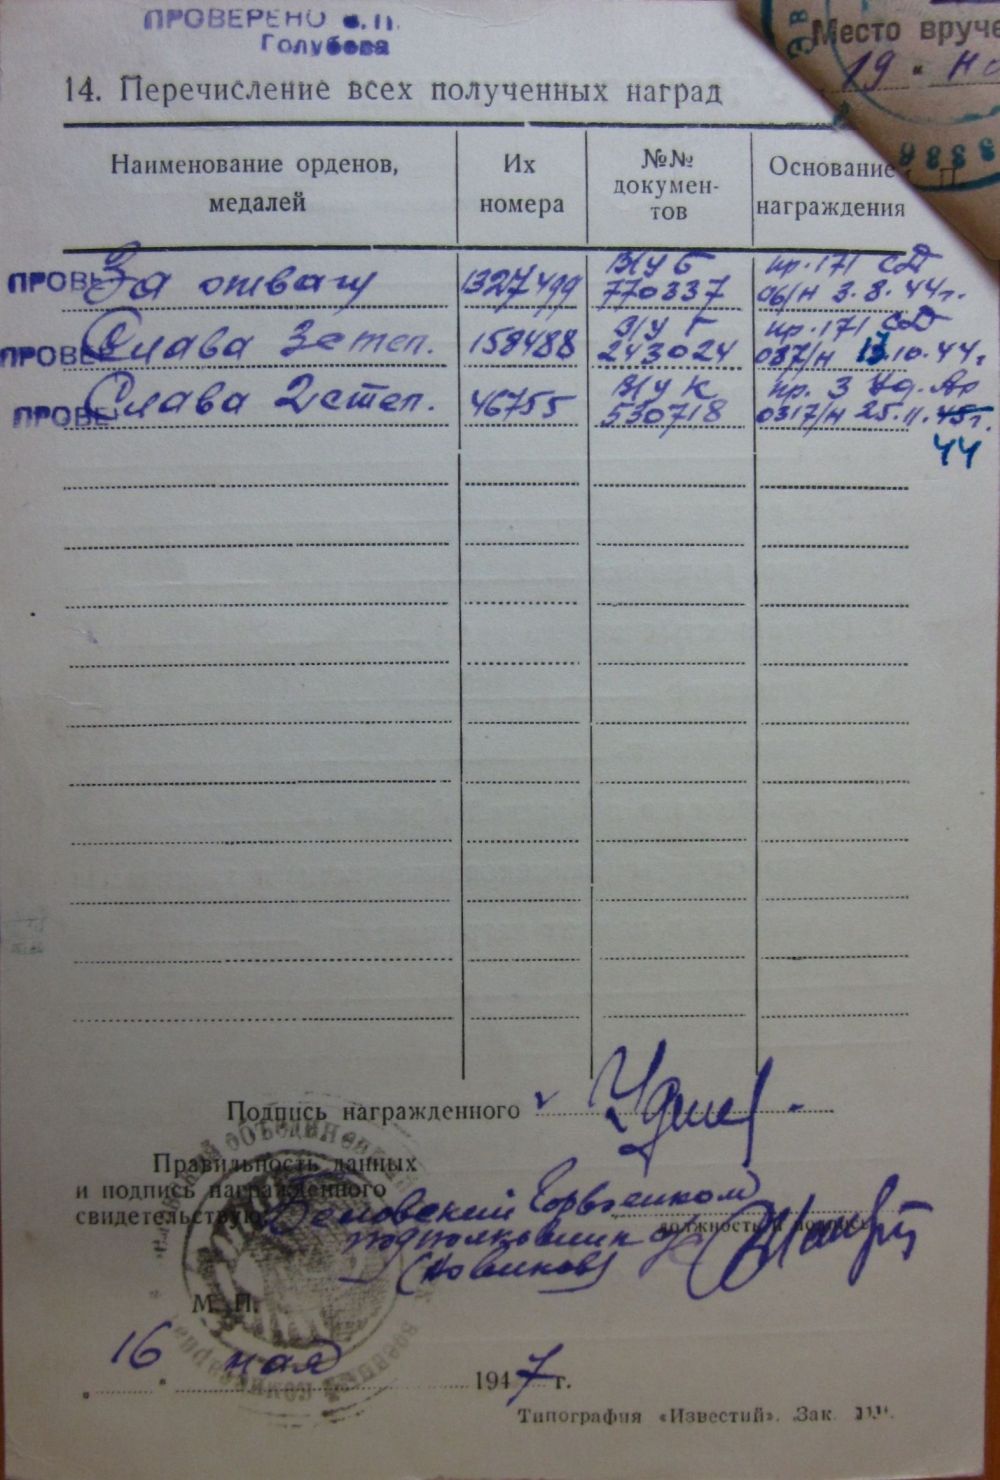 ПРОВЕРЕНО
Голубева
Место вруче
19 " но
14. Перечисление всех полученных наград
Наименование орденов, медалей
Их номера
№№ докумен-тов
Основание награждения
ПРОВЕ За отвагу 1327499 В/у Б 770337 пр. 171 СД 06/н 3.8.44г.
ПРОВЕР Слава 3 степ. 158488 В/у Г 243024 пр. 171 СД 087/н 13.10.44г
ПРОВЕ Слава 2 степ. 46755 В/у К 530718 пр. 3 Уд. Ар 0317/н 25.11.45г.
44
Подпись награжденного
Правильность данных
и подпись награжденного
свидетельствую Горвоенком
должность и подпись
подполковник
(Новиков)
М. П.
" 16 " мая 1947 г.
Типография «Известий». Зак.